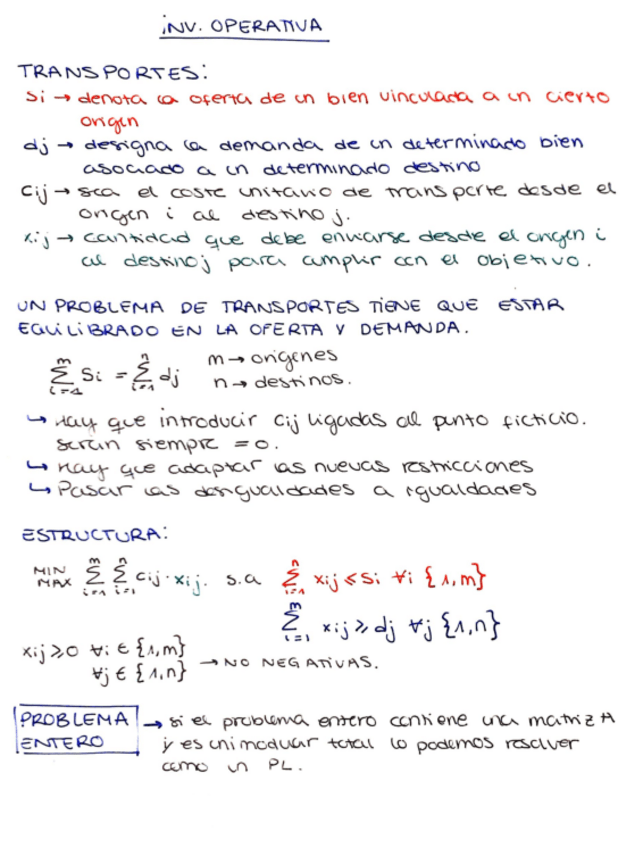 INV. OPERATIVA
TRANSPORTES:
Si → denota la oferta de un bien vinculada a un cierto
origen
dj → designa la demanda de un determinado bien
asociado a un determinado destino
Cij → sea el coste unitario de transporte desde el
origen i al destino j.
xij → cantidad que debe enviarse desde el origen i
al destino j para cumplir con el objetivo.
UN PROBLEMA DE TRANSPORTES TIENE QUE ESTAR
EQUILIBRADO EN LA OFERTA Y DEMANDA.
m → origenes
∑_{i=1}^{m} Si = ∑_{i=1}^{n} dj
n → destinos.
↳ Hay que introducir Cij ligadas al punto ficticio.
serán siempre = 0.
↳ Hay que adaptar las nuevas restricciones
↳ Pasar las desigualdades a igualdades
ESTRUCTURA:
MIN
MAX ∑_{i=1}^{m} ∑_{i=1}^{n} Cij · xij. s.a ∑_{i=1}^{n} xij ≤ Si ∀i {1,m}
∑_{i=1}^{m} xij ≥ dj ∀j {1,n}
xij ≥ 0 ∀i ∈ {1,m}
∀j ∈ {1,n} → NO NEGATIVAS.
PROBLEMA ENTERO → si el problema entero contiene una matriz A
y es unimodular total lo podemos resolver
como un PL.